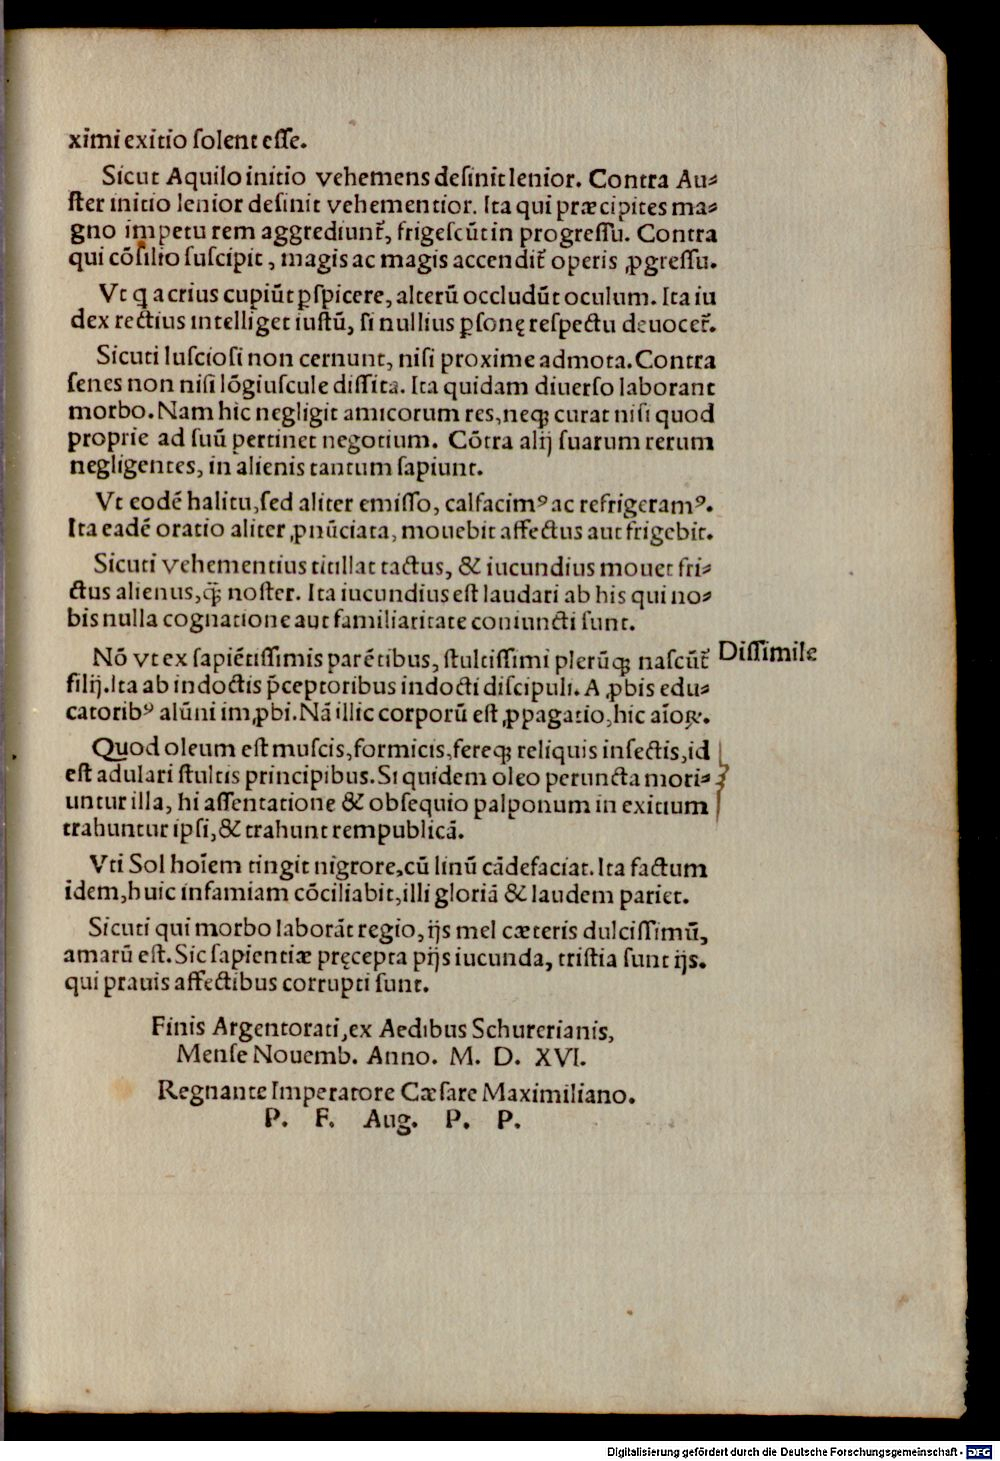 ximi exitio ſolent eſſe.
Sicut Aquilo initio vehemens deſinit lenior. Contra Au⸗
ſter initio lenior deſinit vehementior. Ita qui præcipites ma⸗
gno impetu rem aggrediunt᷑, frigeſcūt in progreſſu. Contra
qui cōſilio ſuſcipit, magis ac magis accendit᷑ operis ꝓgreſſu.
Vt q acrius cupiūt ꝑſpicere, alterū occludūt oculum. Ita iu
dex rectius intelliget iuſtū, ſi nullius ꝑſonę reſpectu deuocet᷑.
Sicuti luſcioſi non cernunt, niſi proxime admota. Contra
ſenes non niſi lōgiuſcule diſſita. Ita quidam diuerſo laborant
morbo. Nam hic negligit amicorum res, neqꝫ curat niſi quod
proprie ad ſuū pertinet negotium. Cōtra alij ſuarum rerum
negligentes, in alienis tantum ſapiunt.
Vt eodē halitu, ſed aliter emiſſo, calfacimꝰ ac refrigeramꝰ.
Ita eadē oratio aliter ꝓnūciata, mouebit affectus aut frigebit.
Sicuti vehementius titillat tactus, & iucundius mouet fri⸗
ctus alienus, q̄ꝫ noſter. Ita iucundius eſt laudari ab his qui no⸗
bis nulla cognatione aut familiaritate coniuncti ſunt.
Nō vt ex ſapiētiſſimis parētibus, ſtultiſſimi plerūqꝫ naſcūt᷑
filij. Ita ab indoctis p̄ceptoribus indocti diſcipuli. A ꝓbis edu⸗
catoribꝰ alūni imꝓbi. Nā illic corporū eſt ꝓpagatio, hic aīoꝝ.
Dissimile
Quod oleum eſt muſcis, formicis, fereqꝫ reliquis inſectis, id
eſt adulari ſtultis principibus. Siquidem oleo peruncta mori⸗
untur illa, hi aſſentatione & obſequio palponum in exitium
trahuntur ipſi, & trahunt rempublicā.
Vti Sol hoīem tingit nigrore, cū linū cādefaciat. Ita factum
idem, huic infamiam cōciliabit, illi gloriā & laudem pariet.
Sicuti qui morbo laborāt regio, ijs mel cæteris dulciſſimū,
amarū eſt. Sic ſapientiæ pręcepta pijs iucunda, triſtia ſunt ijs.
qui prauis affectibus corrupti ſunt.
Finis Argentorati, ex Aedibus Schurerianis,
Menſe Nouemb. Anno. M. D. XVI.
Regnante Imperatore Cæſare Maximiliano.
P. F. Aug. P. P.
Digitalisierung gefördert durch die Deutsche Forschungsgemeinschaft - DFG